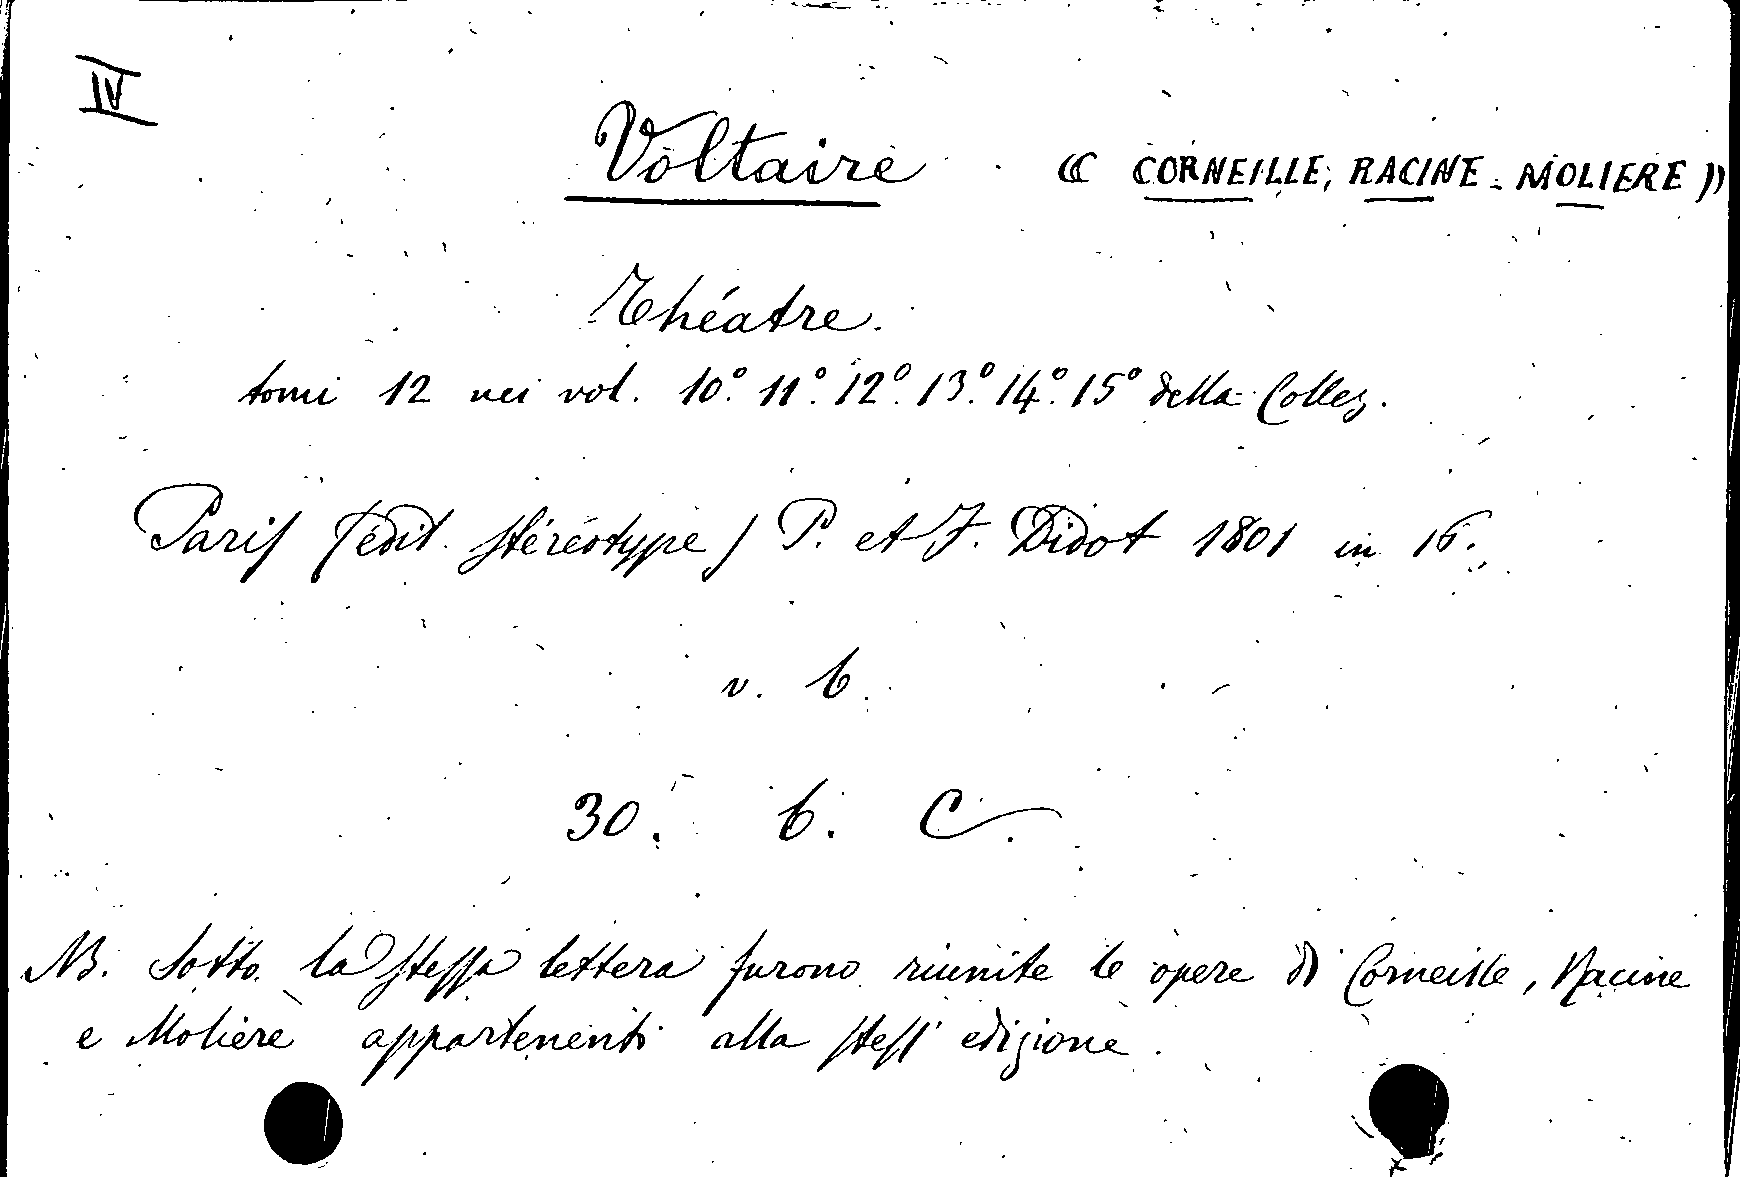 IV
Voltaire (( CORNEILLE, RACINE - MOLIERE ))
Théatre.
tomi 12 nei vol. 10.º 11.º 12.º 13.º 14.º 15º della Collez.
Paris (édit. stéréotype) P. et F. Didot 1801 in 16.
v. 6.
30. 6. C.
NB. Sotto la stessa lettera furono riunite le opere di Corneille, Racine
e Molière appartenenti alla stess' edizione.